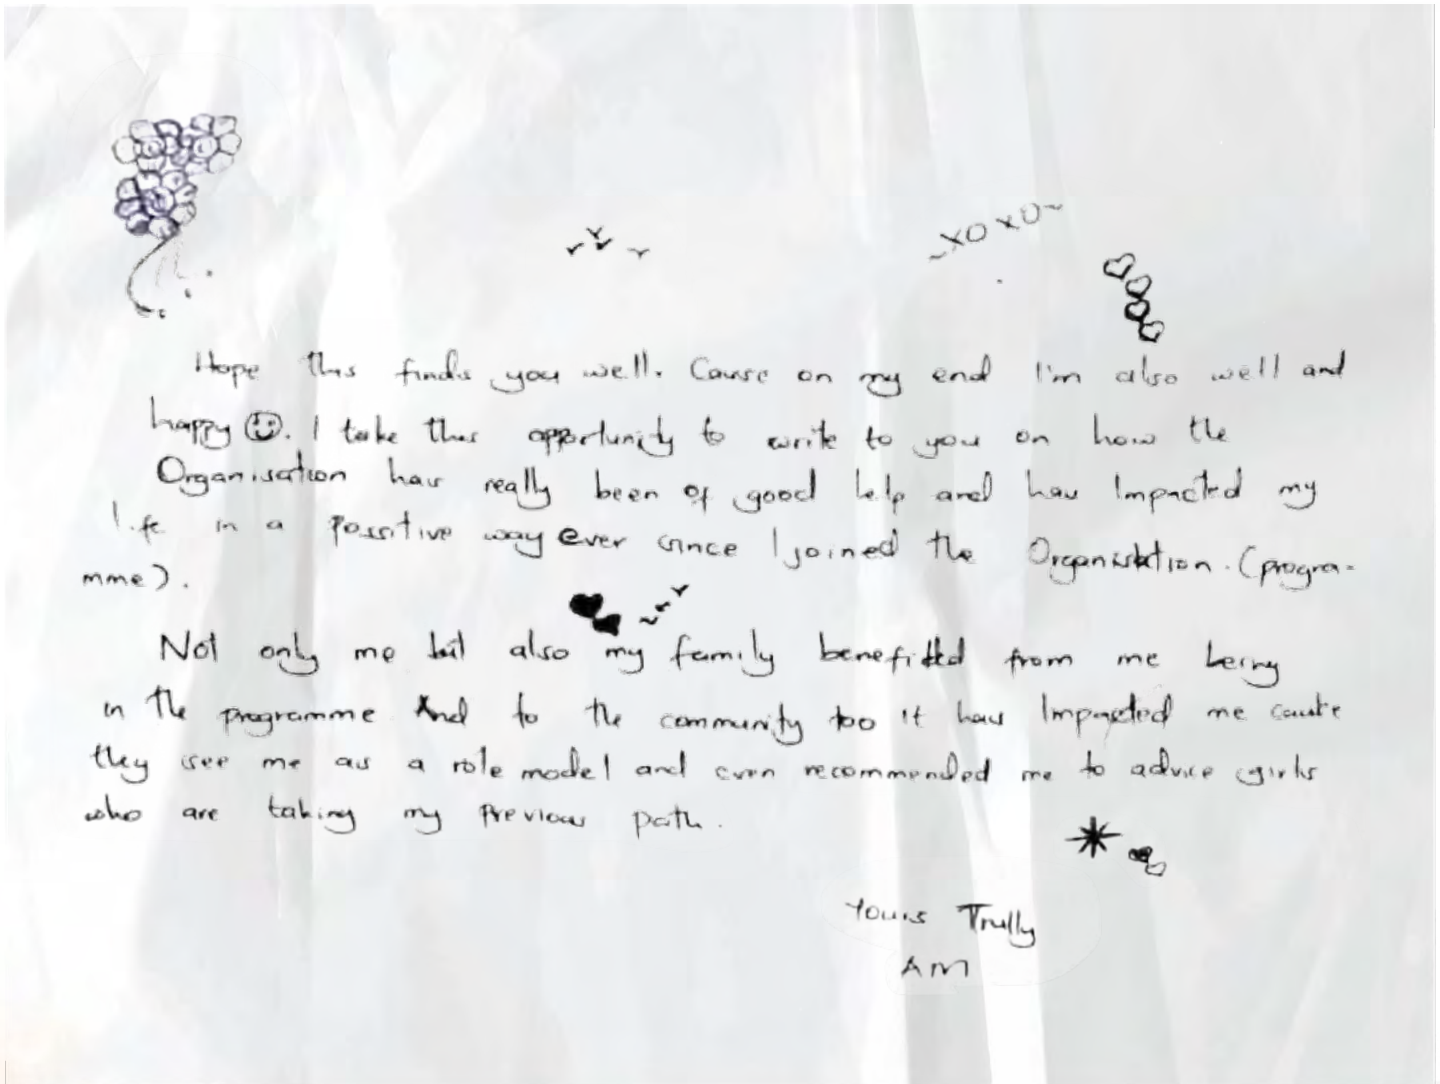 ~XO XO~
Hope this finds you well. Cause on my end I'm also well and
happy ☺. I take this opportunity to write to you on how the
Organisation has really been of good help and has Impacted my
life in a possitive way ever since I joined the Organisation. (progra-
mme).
Not only me but also my family benefitted from me being
in the programme And to the community too it has Impacted me cause
they see me as a role model and even recommended me to advice girls
who are taking my previous path.
Yours Trully
AM